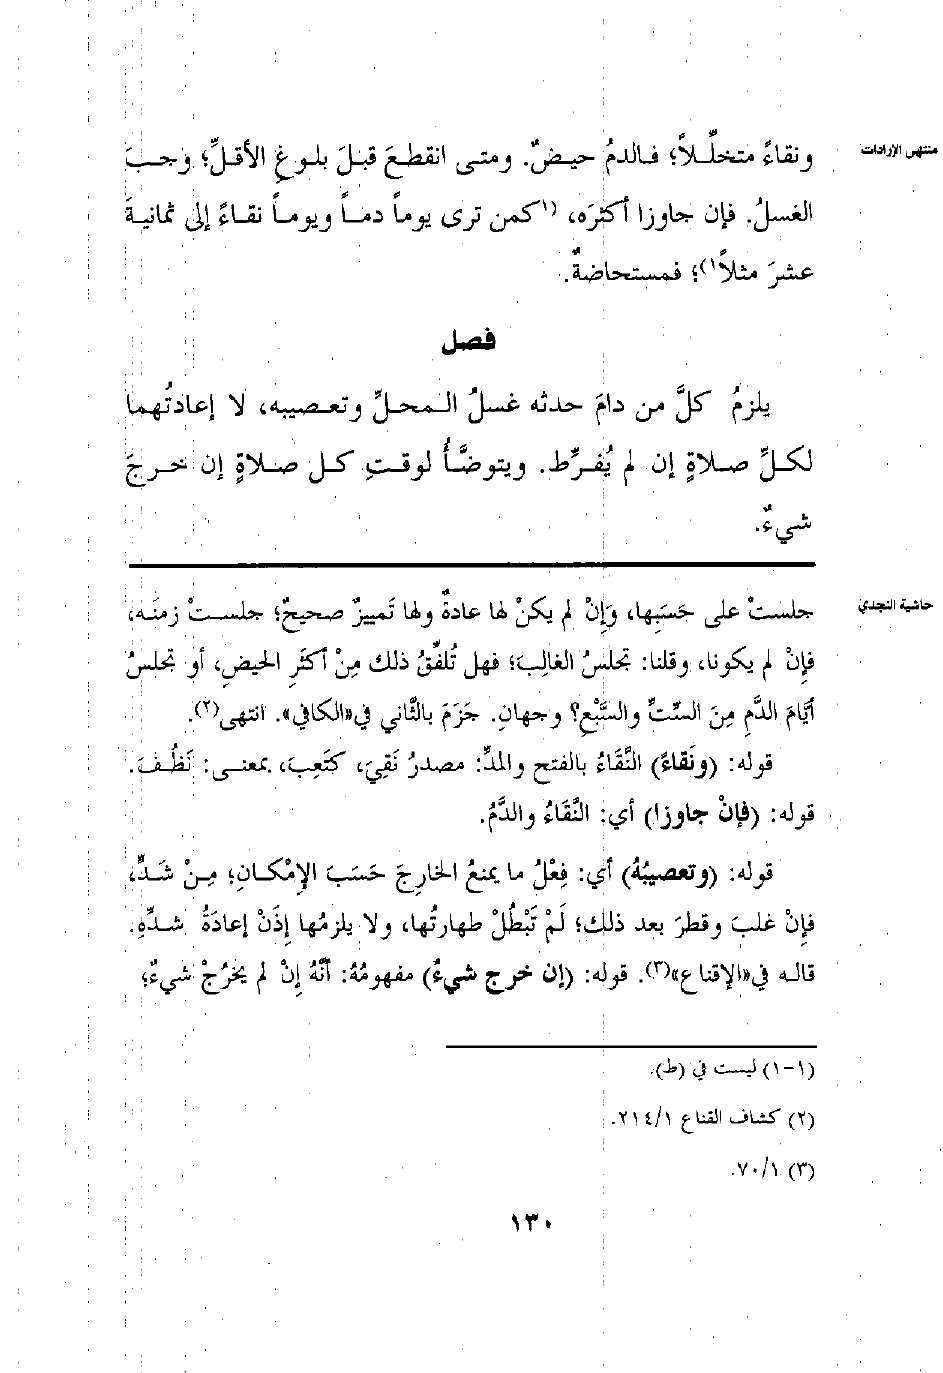 منتهى الإرادات
ونقاءً متخلِّلاً؛ فالدمُ حيضٌ. ومتى انقطعَ قبلَ بلوغِ الأقلِّ؛ وجبَ
الغسلُ. فإن جاوزا أكثرَه، (١كمن ترى يوماً دماً ويوماً نقاءً إلى ثمانيةَ
عشرَ مثلاً١)؛ فمستحاضةٌ.
فصل
يلزمُ كلَّ من دامَ حدثه غسلُ المحلِّ وتعصيبه، لا إعادتُهما
لكلِّ صلاةٍ إن لم يُفرِّط. ويتوضَّأُ لوقتِ كل صلاةٍ إن خرجَ
شيءٌ.
حاشية النجدي
جلستْ على حَسَبِها، وَإِنْ لم يكنْ لها عادةٌ ولها تَمييزٌ صحيحٌ؛ جلستْ زمنَه،
فإنْ لم يكونا، وقلنا: تجلسُ الغالِبَ؛ فهل تُلفِّقُ ذلك مِنْ أكثَرِ الحيضِ، أو تجلسُ
أيَّامَ الدَّمِ مِنَ السِّتِّ والسَّبْعِ؟ وجهانِ. جَزَمَ بالثَّاني في«الكافي». انتهى(٢).
قوله: (ونَقاءً) النَّقَاءُ بالفتح والمدِّ: مصدرُ نَقِيَ، كتَعِبَ، بمعنى: نَظُفَ.
قوله: (فإنْ جاوزا) أي: النَّقَاءُ والدَّمُ.
قوله: (وتعصيبُهُ) أي: فِعْلُ ما يمنعُ الخارِجَ حَسَبَ الإمْكانِ؛ مِنْ شَدٍّ،
فإنْ غلبَ وقطرَ بعد ذلك؛ لَمْ تَبْطُلْ طهارتُها، ولا يلزمُها إذَنْ إعادَةُ شدِّهِ.
قاله في«الإقناع»(٣). قوله: (إن خرج شيءٌ) مفهومُهُ: أنَّهُ إنْ لم يخرُجْ شيءٌ؛
(١-١) ليست في (ط).
(٢) كشاف القناع ٢١٤/١.
(٣) ٧٠/١.
١٣٠